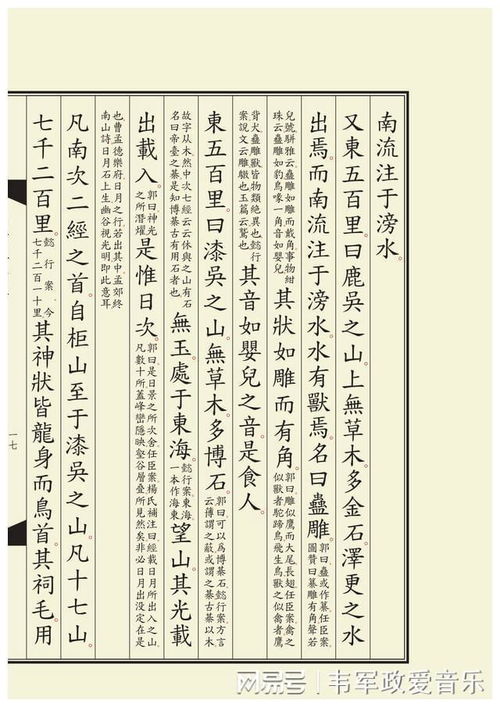 南流注于滂水。
又東五百里曰鹿吳之山。上無草木。多金石。澤更之水
出焉。而南流注于滂水。水有獸焉。名曰蠱雕。郭曰蠱或作纂任臣案圖贊曰纂雕有角聲若
兒號駢雅云蠱雕如雕而戴角事物紺珠云蠱雕如豹鳥喙一角音如嬰兒其狀如雕而有角。郭曰雕似鷹而大尾長翅任臣案禽之似獸者駝蹄鳥飛生鳥獸之似禽者鷹
背犬蠱雕獸皆物類絕異也懿行案說文云雕也玉篇云鷲也其音如嬰兒之音。是食人。
東五百里曰漆吳之山。無草木。多博石。郭曰可以爲博棊石懿行案方言云簙謂之蔽或謂之棊古棊以木
故字从木然中次七經云云休與之山有石名曰帝臺之棊是知博棊古有用石者也無玉。處于東海。懿行案東海一本作海東望山其光載
出載入。郭曰神光之所潛燿是惟日次。郭曰是日景之所次舍任臣案楊氏補注曰經載日月所出入之山凡數十所蓋峰巒隱映壑谷層疊所見然矣非必日月出沒定在是
也曹孟德樂府日月之行若出其中孟郊終南山詩日月石上生幽谷視光明即此意耳
凡南次二經之首。自柜山至于漆吳之山。凡十七山。
七千二百里。懿行案今七千二百一十里其神狀皆龍身而鳥首。其祠毛用
一七
网易号 | 韦军政爱音乐